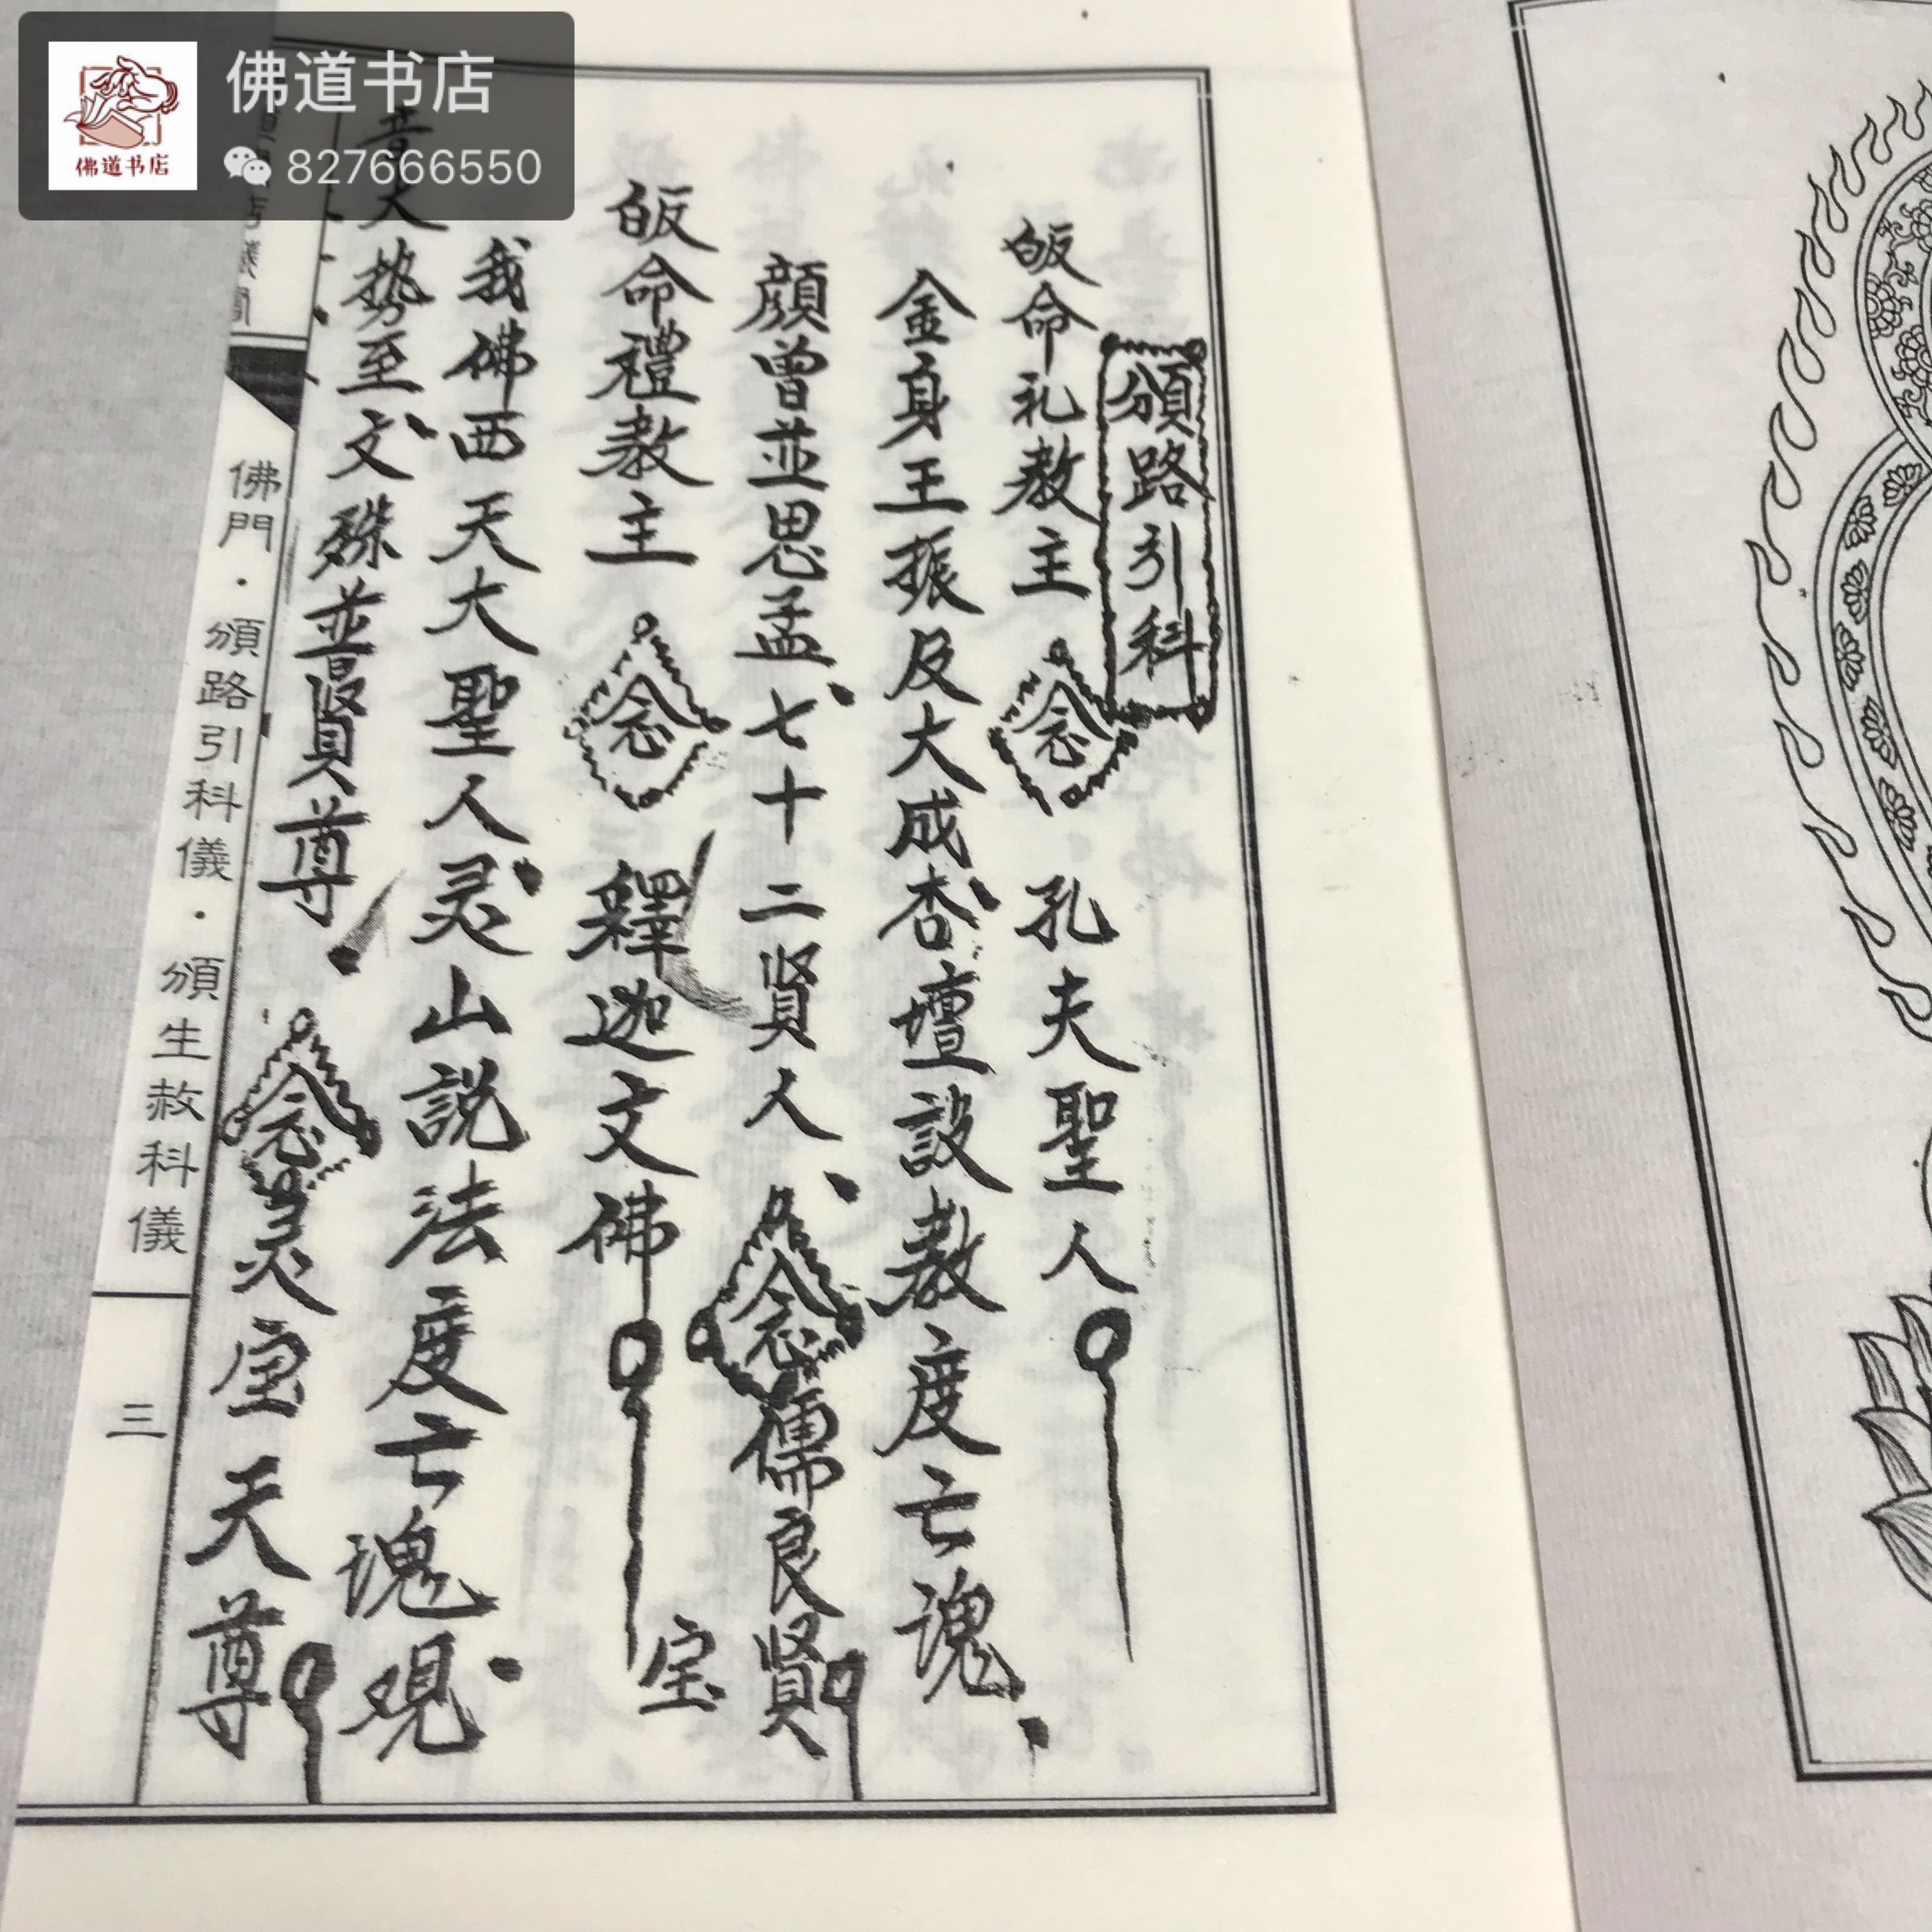 佛道书店
827666550
佛道书店
頒路引科
皈命礼教主 念 孔夫聖人
金身王振及大成杏壇設教度亡魂
顏曾並思孟七十二賢人 念 儒良賢
皈命禮教主 念 釋迦文佛 宝
我佛西天大聖人灵山説法度亡魂观
音大势至文殊並賢尊 念 灵宝天尊
佛門·頒路引科儀·頒生赦科儀
三